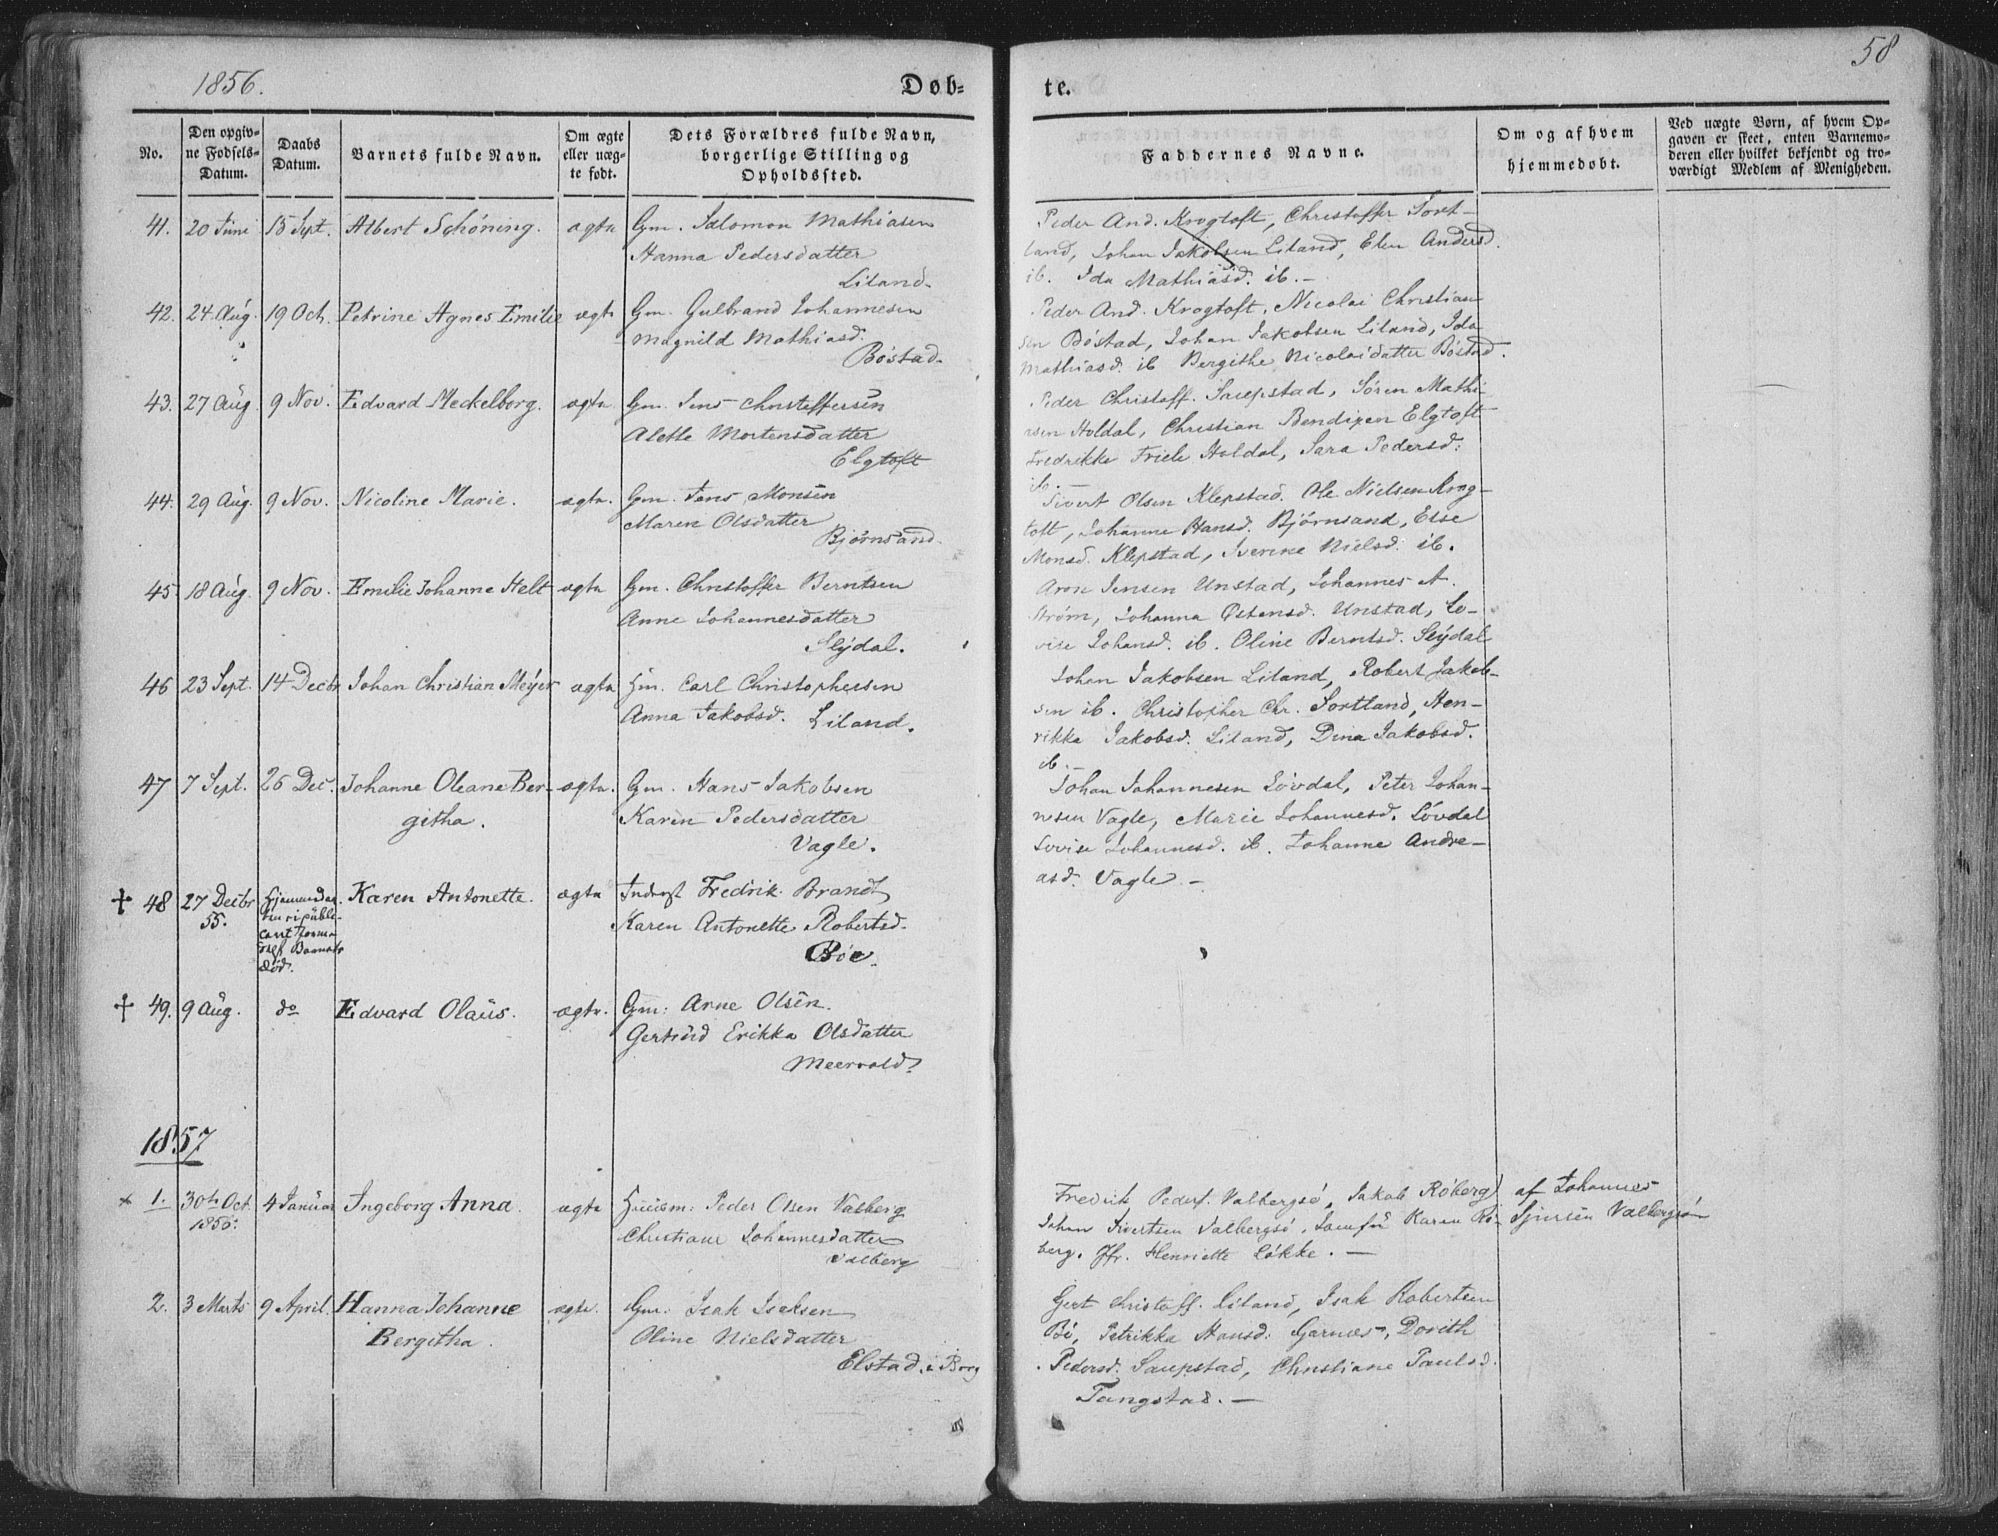 1856.
Døb=
te.
58
No.
Den opgiv=
ne Fødsels=
Datum.
Daabs
Datum.
Barnets fulde Navn.
Om ægte
eller uæg=
te født.
Dets Forældres fulde Navn,
borgerlige Stilling og
Opholdssted.
Faddernes Navne.
Om og af hvem
hjemmedøbt.
Ved uægte Børn, af hvem Op=
gaven er skeet, enten Barnemo=
deren eller hvilket bekjendt og tro=
værdigt Medlem af Menigheden.
41. 20 Juni 15 Sept. Albert Schöning. ægte Gm. Salomon Mathiasen
Hanna Pedersdatter
Liland.
Peder And. Krogtoft, Christoffer Sort-
land, Johan Jakobsen Liland, Elen Andersd.
ib. Ida Mathiasd. ib. -
42. 24 Aug. 19 Oct. Petrine Agnes Emilie ægte Gm. Gulbrand Johannesen
Magnild Mathiasd.
Böstad.
Peder And. Krogtoft, Nicolai Christian
sen Böstad, Johan Jakobsen Liland, Ida
Mathiasd. ib Bergithe Nicolaidatter Böstad.
43. 27 Aug. 9 Nov. Edvard Meckelborg. ægte Gm. Jens Christoffersen
Alette Mortensdatter
Elgtoft
Peder Christoff. Saupstad, Sören Mathi-
sen Holdal, Christian Bendixen Elgtoft
Fredrikke Friele Holdal, Sara Pedersd:
ib. -
44. 29 Aug. 9 Nov. Nicoline Marie. ægte. Gm. Jens Monsen
Maren Olsdatter
Björnsand.
Sivert Olsen Klepstad. Ole Nielsen Krog-
toft, Johanne Hansd. Björnsand, Else
Monsd. Klepstad, Iverine Nielsd. ib.
45 18 Aug. 9 Nov. Emilie Johanne Helt ægte Gm. Christoffer Berntsen
Anne Johannesdatter
Slydal.
Aron Jensen Unstad, Johannes A.
Ström, Johanna Östensd. Unstad, Lo-
vise Johansd. ib. Oline Berntsd. Slydal
46 23 Sept. 14 Decbr Johan Christian Meyer ægte Hm. Carl Christophersen
Anna Jakobsd. Liland.
Johan Jakobsen Liland, Robert Jakob-
sen ib. Christopher Chr. Sortland, Hen-
rikka Jakobsd. Liland, Dina Jakobsd.
ib. -
47 7 Sept. 26 Dec. Johanne Oleane Ber- ægte. Gm. Hans Jakobsen
githa.
Karen Pedersdatter
Vagle.
Johan Johannesen Lövdal, Peter Johan-
nesen Vagle, Marie Johannesd. Lövdal
Lovise Johannesd. ib. Johanne Andre-
asd. Vagle. -
48 27 Decbr Karen Antonette. ægte Inderst Fredrik Brandt
55.
død.
Karen Antonette Robertsd.
Böe.
49. 9 Aug. do Edvard Olaus. ægte. Gm: Arne Olsen.
Gertrud Erikka Olsdatter
Meervold.
1857
1. 30te Oct. 4 Januar Ingeborg Anna. ægte Huusm: Peder Olsen Valberg
1856.
Christiane Johannesdatter
Valberg
Fredrik Peders. Valbergsö, Jakob Röberg
Johan Sivertsen Valbergsö, Jomfru Karen Rö-
berg. Jfr. Henriette Lökke. -
af Johannes
Sjursen Valbergsön
2. 3 Marts 9 April. Hanna Johanne ægte. Gm: Isak Isaksen
Bergitha.
Oline Nielsdatter
Elstad i Borg
Gert Christoff. Liland, Isak Robertsen
Bö, Petrikka Hansd: Garnes, Dorith
Pedersd. Saupstad, Christiane Paulsd.
Tangstad. -